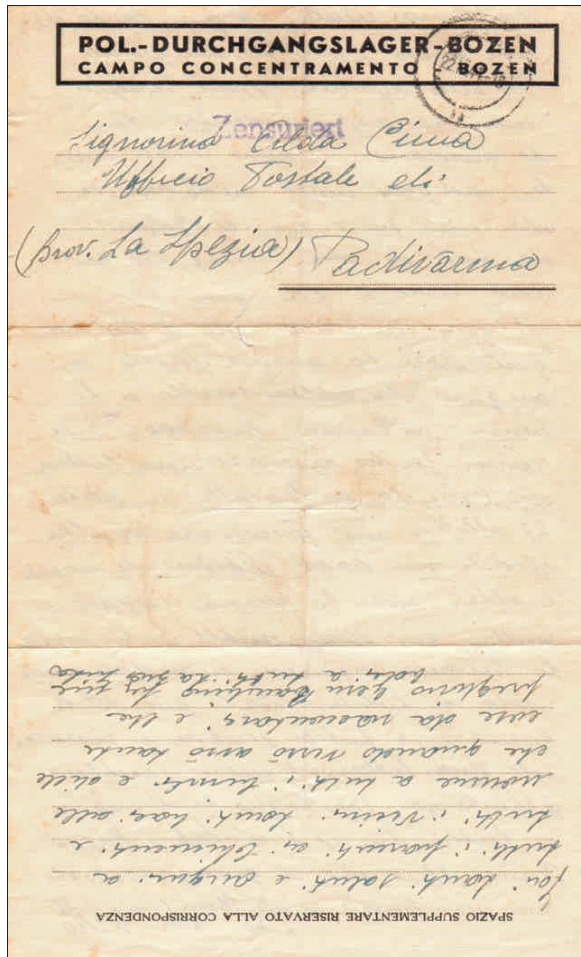 POL.-DURCHGANGSLAGER-BOZEN
CAMPO CONCENTRAMENTO BOZEN
Zensuriert
Signorina Cima
Ufficio Postale di
(Prov. La Spezia) Padivarma
SPAZIO SUPPLEMENTARE RISERVATO ALLA CORRISPONDENZA
tanti saluti e auguri a
tutti i parenti ai Chimenti e
tutti i vicini tanti baci alle
nonne a tutti i e dille
che quando verrò avrò tante
cose da e che
preghino Gesù Bambino per
baci a tutti la zia